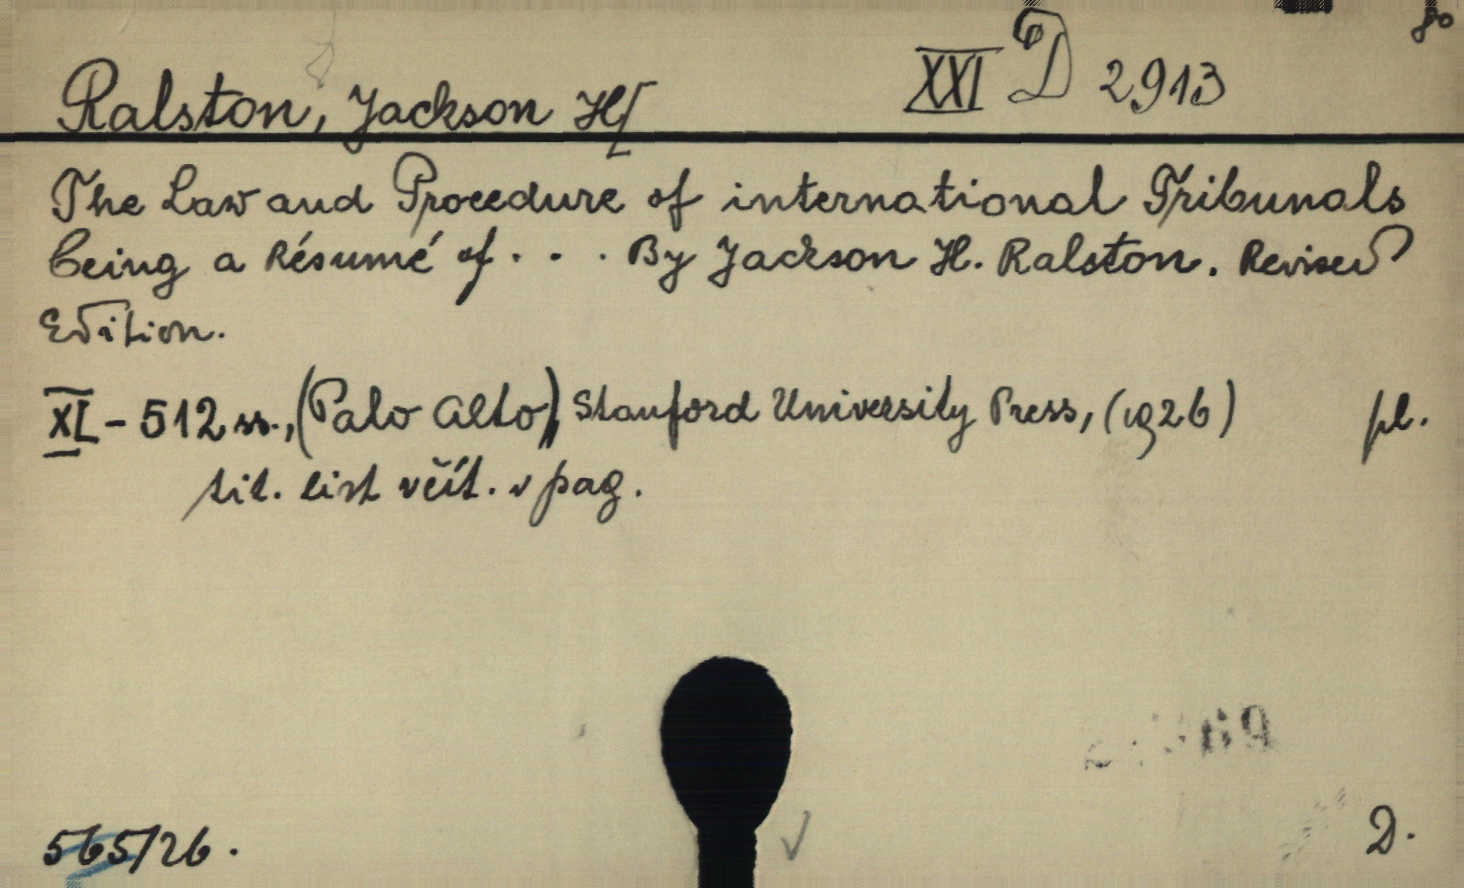 80
Ralston, Jackson H[
XXI D 2913
The Law and Procedure of international Tribunals
being a Résumé of . . . By Jackson H. Ralston. Revised
Edition.
XI - 512 ss., (Palo Alto), Stanford University Press, (1926) pl.
tit. list včít. v pag.
565/26. D.